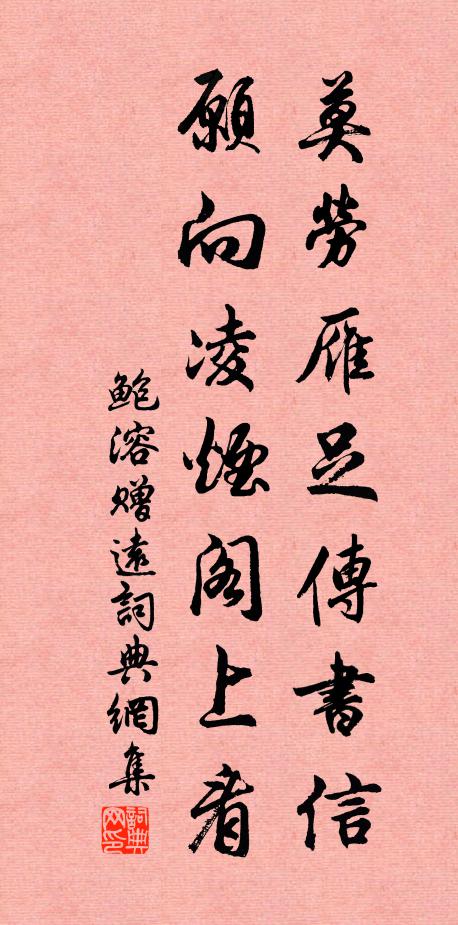 莫勞雁足傳書信
願向凌煙閣上看
鮑溶贈遠詞典網集
詞典网印